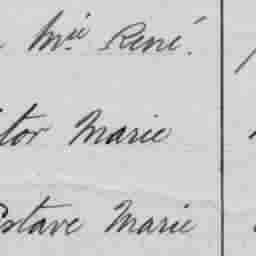 Mie René.
ctor Marie
stave Marie